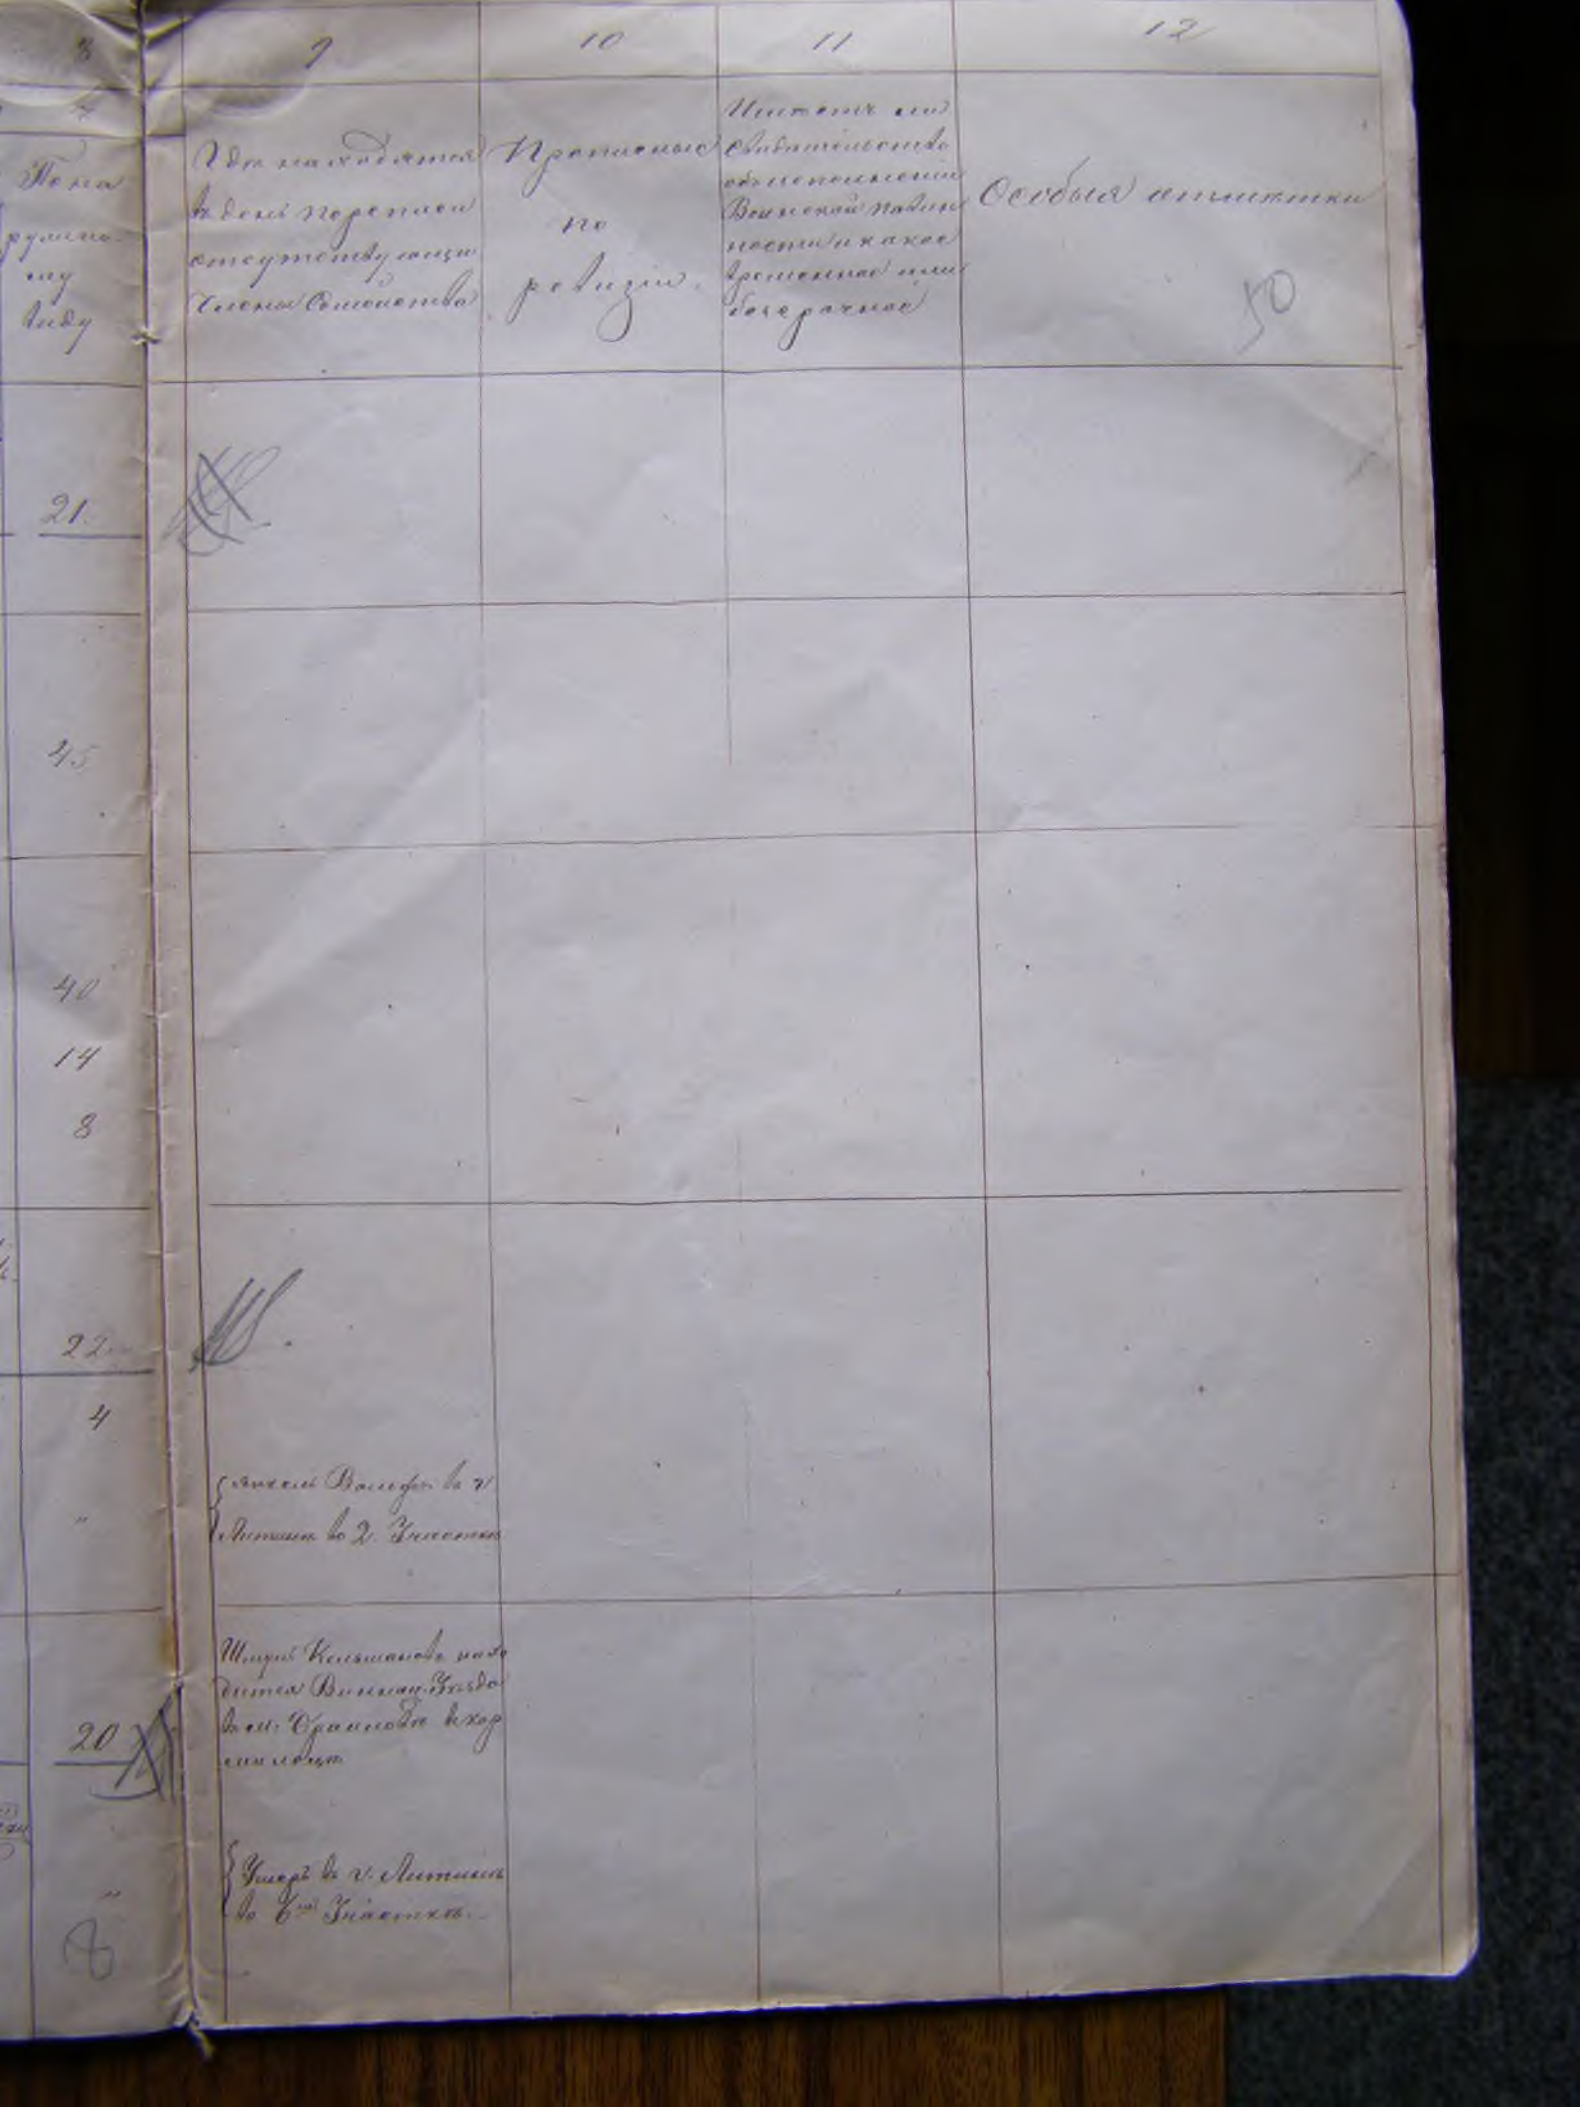 8
9
10
11
12
7
По на
ружно
му
виду
Где находятся
въ день переписи
отсутствующи
Члены Семейства
Прописные
по
ревизіи.
Имеютъ ли
свидетельство
объ исполнении
Воинской повин
ности и какое
временное или
безсрочное
Особыя отметки
50
21.
45
40
14
8
22
4
"
Вольфъ въ г.
Литине во 2. Участке
Шмуль нахо
дится Винниц. Уезда
въ м.
20
Умеръ въ г. Литине
въ Участке.
"
8